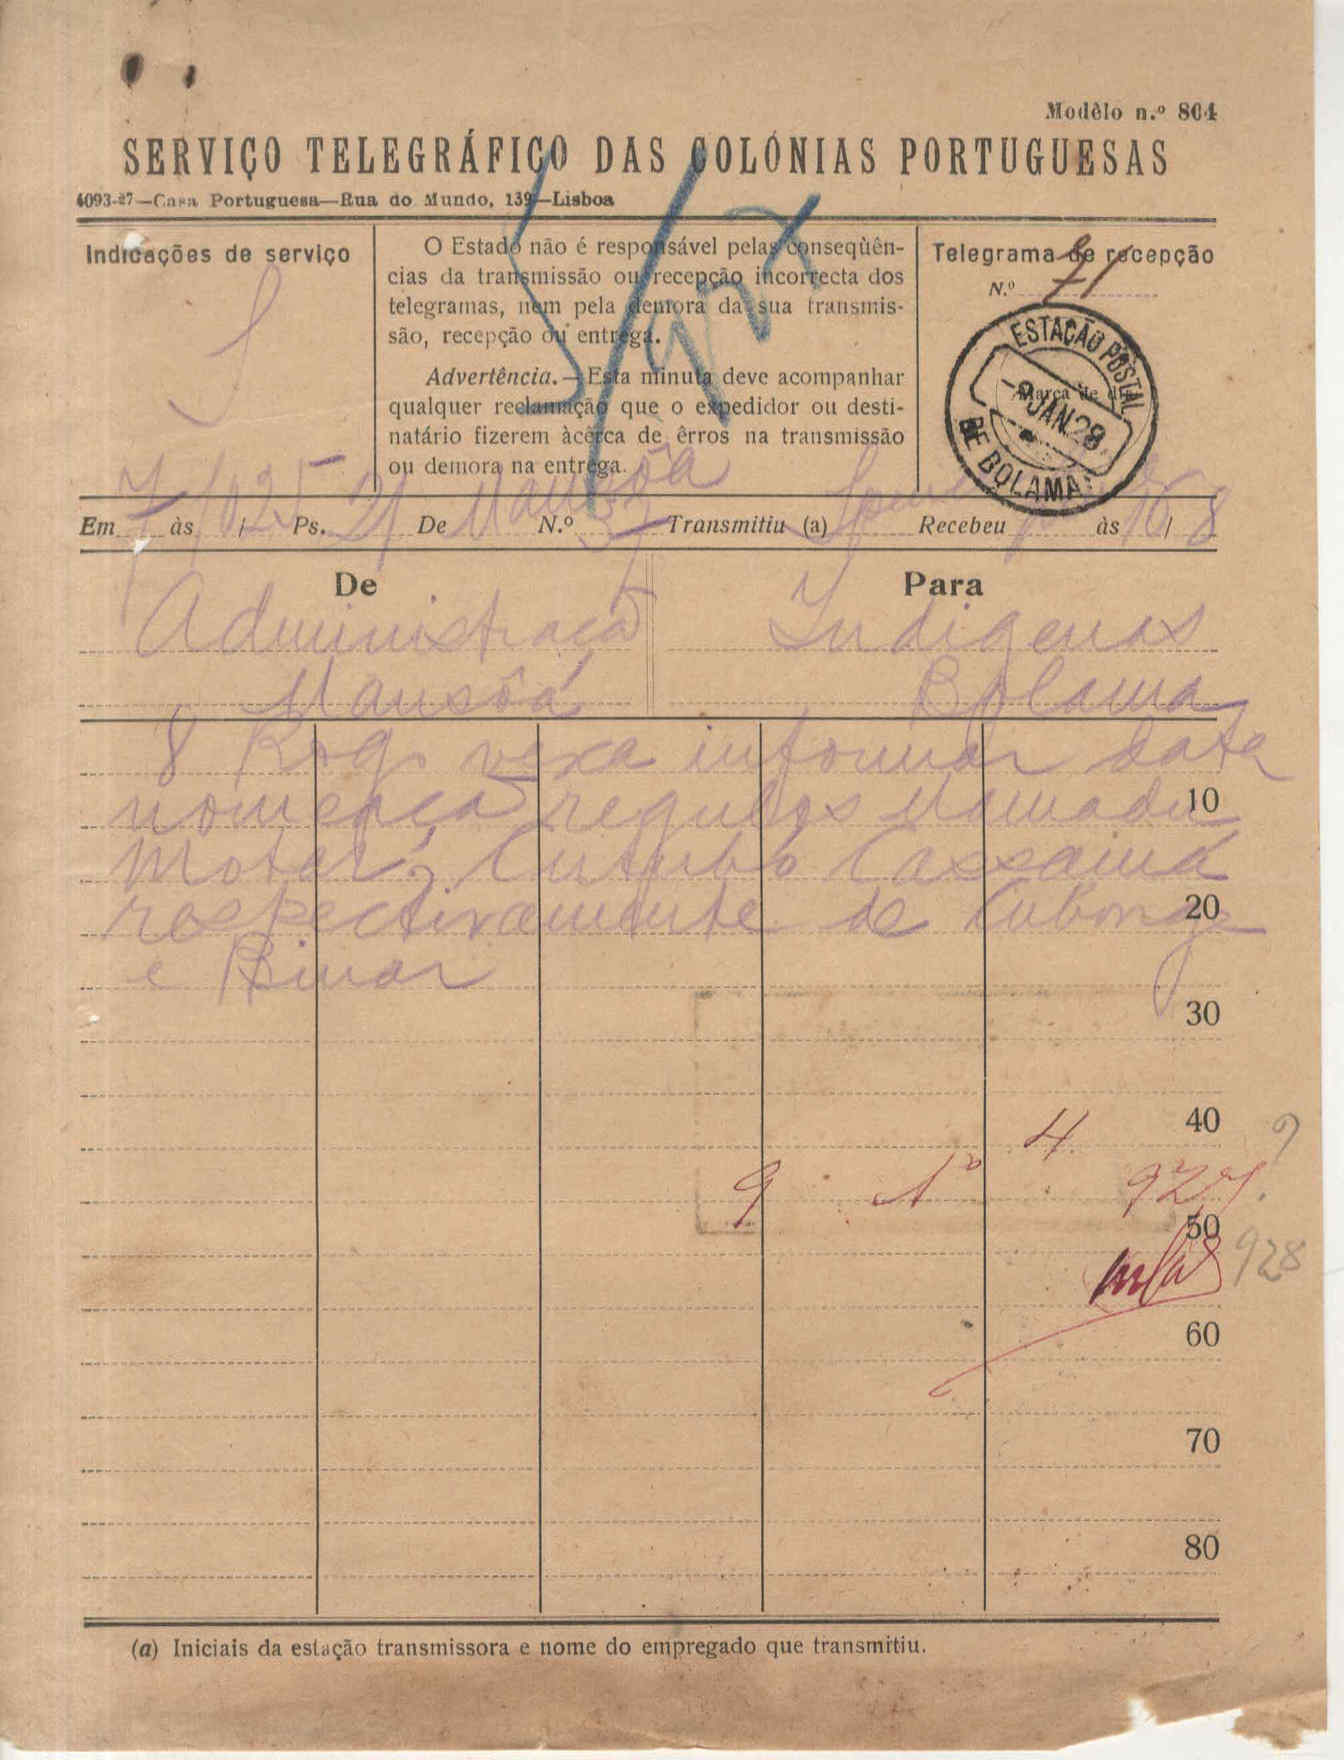 Modêlo n.º 804
SERVIÇO TELEGRÁFICO DAS COLÓNIAS PORTUGUESAS
4093-27—Casa Portuguesa—Rua do Mundo, 139—Lisboa
Indicações de serviço
S
O Estado não é responsável pelas conseqùên-
cias da transmissão ou recepção incorrecta dos
telegramas, nem pela demora da sua transmis-
são, recepção ou entrega.
Advertência.—Esta minuta deve acompanhar
qualquer reclamação que o expedidor ou desti-
natário fizerem àcêrca de êrros na transmissão
ou demora na entrega.
Telegrama de recepção
N.º 71
Marca de dia
ESTAÇÃO POSTAL
-9JAN.28
DE BOLAMA
Em 7 às 1025 Ps. 21 De Mansôa N.º Transmitiu (a) Recebeu às 16/8
De
Para
Administração
Indigenas
Mansôá
Bolama
8 Rogo vexa informar data
nomeação regulos Mamadu
10
Motar, Cutubo Cassamá
respectivamente de Cubonge
20
e Binar
30
40
4
9
9 1º 927
50
928
60
70
80
(a) Iniciais da estação transmissora e nome do empregado que transmitiu.